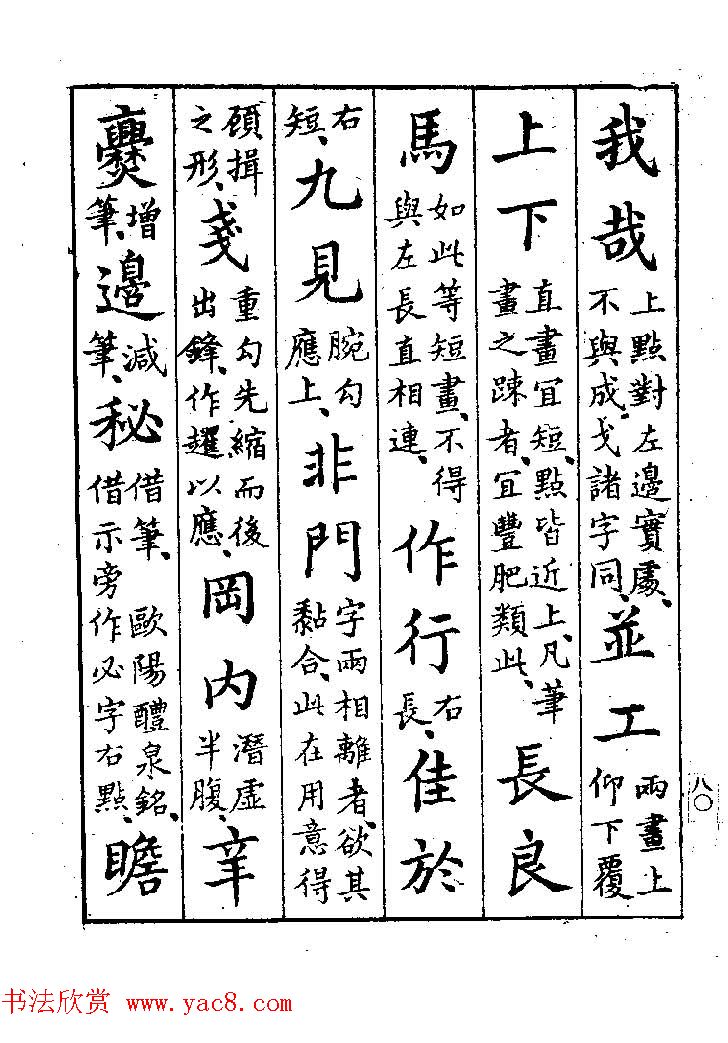 我哉上點對左邊實處、不與成戈諸字同、並工兩畫上仰下覆
上下直畫宜短、點皆近上、凡筆畫之疎者、宜豐肥類此、長良
馬如此等短畫、不得與左長直相連、作行右長、佳於
右短、九見腕勾應上、非門字兩相離者、欲其黏合、此在用意得
頋揖之形、戔重勾先縮而後出鋒、作趯以應、岡内潛虛半腹、辛
爨增筆、邊減筆、秘借筆、歐陽醴泉銘、借示旁作必字右點、瞻
八〇
书法欣赏 www.yac8.com